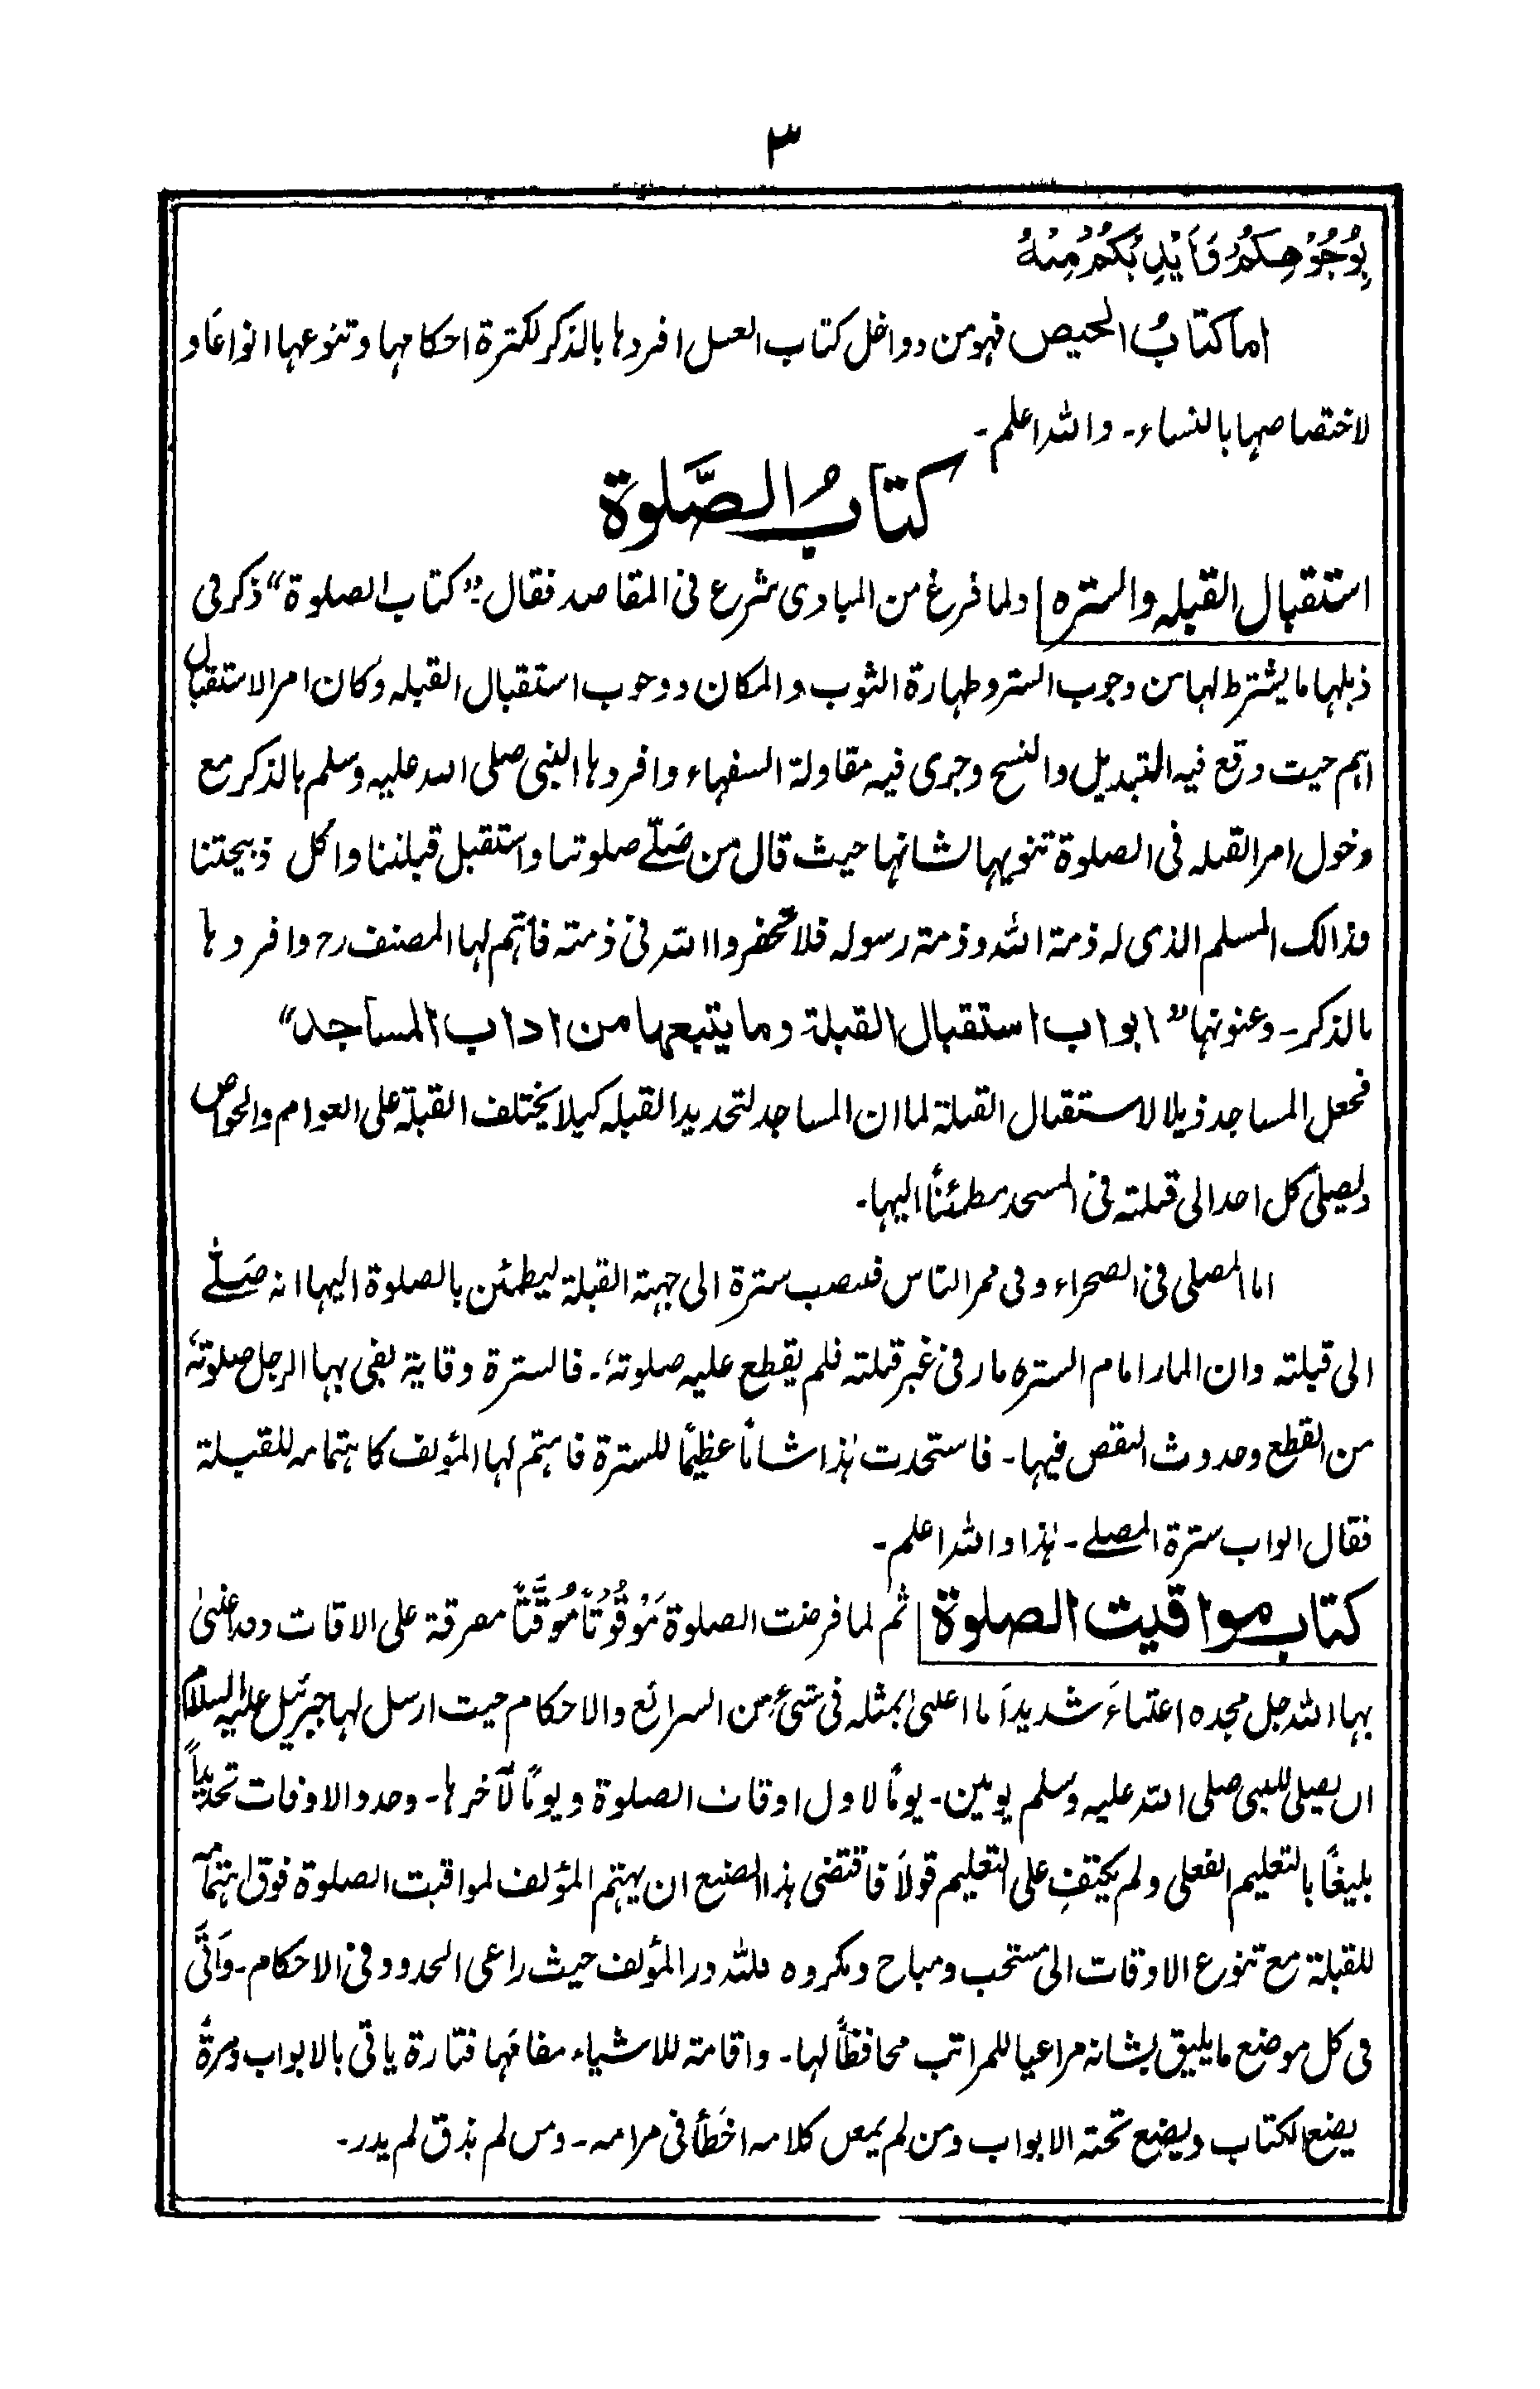 ٣
بِوُجُوْهِكُمْ وَاَيْدِيْكُمْ مِنْهُ
اما كتابُ الحيض فهو من دواخل كتاب الغسل افردها بالذكر لكثرة احكامها وتنوعها انواعًا و
لاختصاصها بالنساء۔ والله اعلم۔
كتابُ الصَّلوة
استقبال القبله والستره ولما فرغ من المبادى شرع فى المقاصد فقال :"كتاب الصلوة" ذكر فى
ذيلها ما يشترط لها من وجوب الستر وطهارة الثوب والمكان ووجوب استقبال القبله وكان امر الاستقبال
اهم حيث وقع فيه التبديل والنسخ وجرى فيه مقاولة السفهاء وافردها النبى صلى الله عليه وسلم بالذكر مع
دخول امر القبله فى الصلوة تنويها لشانها حيث قال من صَلّے صلوتنا واستقبل قبلتنا واكل ذبيحتنا
فذالك المسلم الذى له ذمة الله وذمة رسوله فلا تخفروا الله فى ذمته فأهتم لها المصنف رح وافردها
بالذكر۔ وعنونها "ابواب استقبال القبلة وما يتبعها من اداب المساجد"
فجعل المساجد ذيلا لاستقبال القبلة لما ان المساجد لتحديد القبله كيلا يختلف القبلة على العوام والخواص
وليصلى كل احد الى قبلته فى المسجد مطمئنًا اليها۔
اما المصلى فى الصحراء وفى ممر الناس فينصب سترة الى جهة القبلة ليطمئن بالصلوة اليها انه صَلّے
الى قبلته وان المار امام الستره مار فى غير قبلته فلم يقطع عليه صلوتهٗ۔ فالسترة وقاية يقى بها الرجل صلوتهٗ
من القطع وحدوث النقص فيها۔ فاستحدث هٰذا شانًا عظيمًا للسترة فاهتم لها المؤلف كاهتمامه للقبلة
فقال ابواب سترة المصلے۔ هٰذا والله اعلم۔
كتاب مواقيت الصلوة ثم لما فرضت الصلوة مَوْقُوْتًا مُوَقَّتًا مفرقة على الاوقات وقد اعتنىٰ
بها الله جل مجده اعتناءً شديدًا ما اعتنىٰ بمثله فى شىء من الشرائع والاحكام حيث ارسل لها جبرئيل عليه السلام
ان يصلى للنبى صلى الله عليه وسلم يومين۔ يومًا لاول اوقات الصلوة ويومًا لآخرها۔ وحدد الاوقات تحديدًا
بليغًا بالتعليم الفعلى ولم يكتفِ على التعليم قولًا فاقتضى هذا الصنيع ان يهتم المؤلف لمواقيت الصلوة فوق اهتمامه
للقبلة مع تنوع الاوقات الى مستحب ومباح ومكروه فلله در المؤلف حيث راعى الحدود فى الاحكام۔ وَاَتٰى
فى كل موضع ما يليق بشانه مراعيا للمراتب محافظًا لها۔ واقامة للاشياء مقامَها فتارة ياتى بالابواب ومرةً
يضع الكتاب ويضع تحته الابواب ومن لم يمعن كلامه اخطأ فى مرامه۔ ومن لم يذق لم يدر۔